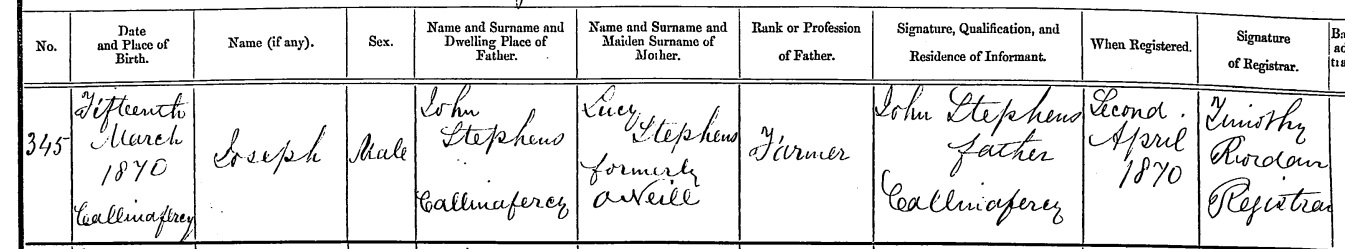 No.
Date
and Place of
Birth.
Name (if any).
Sex.
Name and Surname and
Dwelling Place of
Father.
Name and Surname and
Maiden Surname of
Mother.
Rank or Profession
of Father.
Signature, Qualification, and
Residence of Informant.
When Registered.
Signature
of Registrar.
345
Fifteenth
March
1870
Callinafercy
Joseph
Male
John
Stephens
Callinafercy
Lucy
Stephens
formerly
O'Neill
Farmer
John Stephens
father
Callinafercy
Second
April
1870
Timothy
Riordan
Registrar